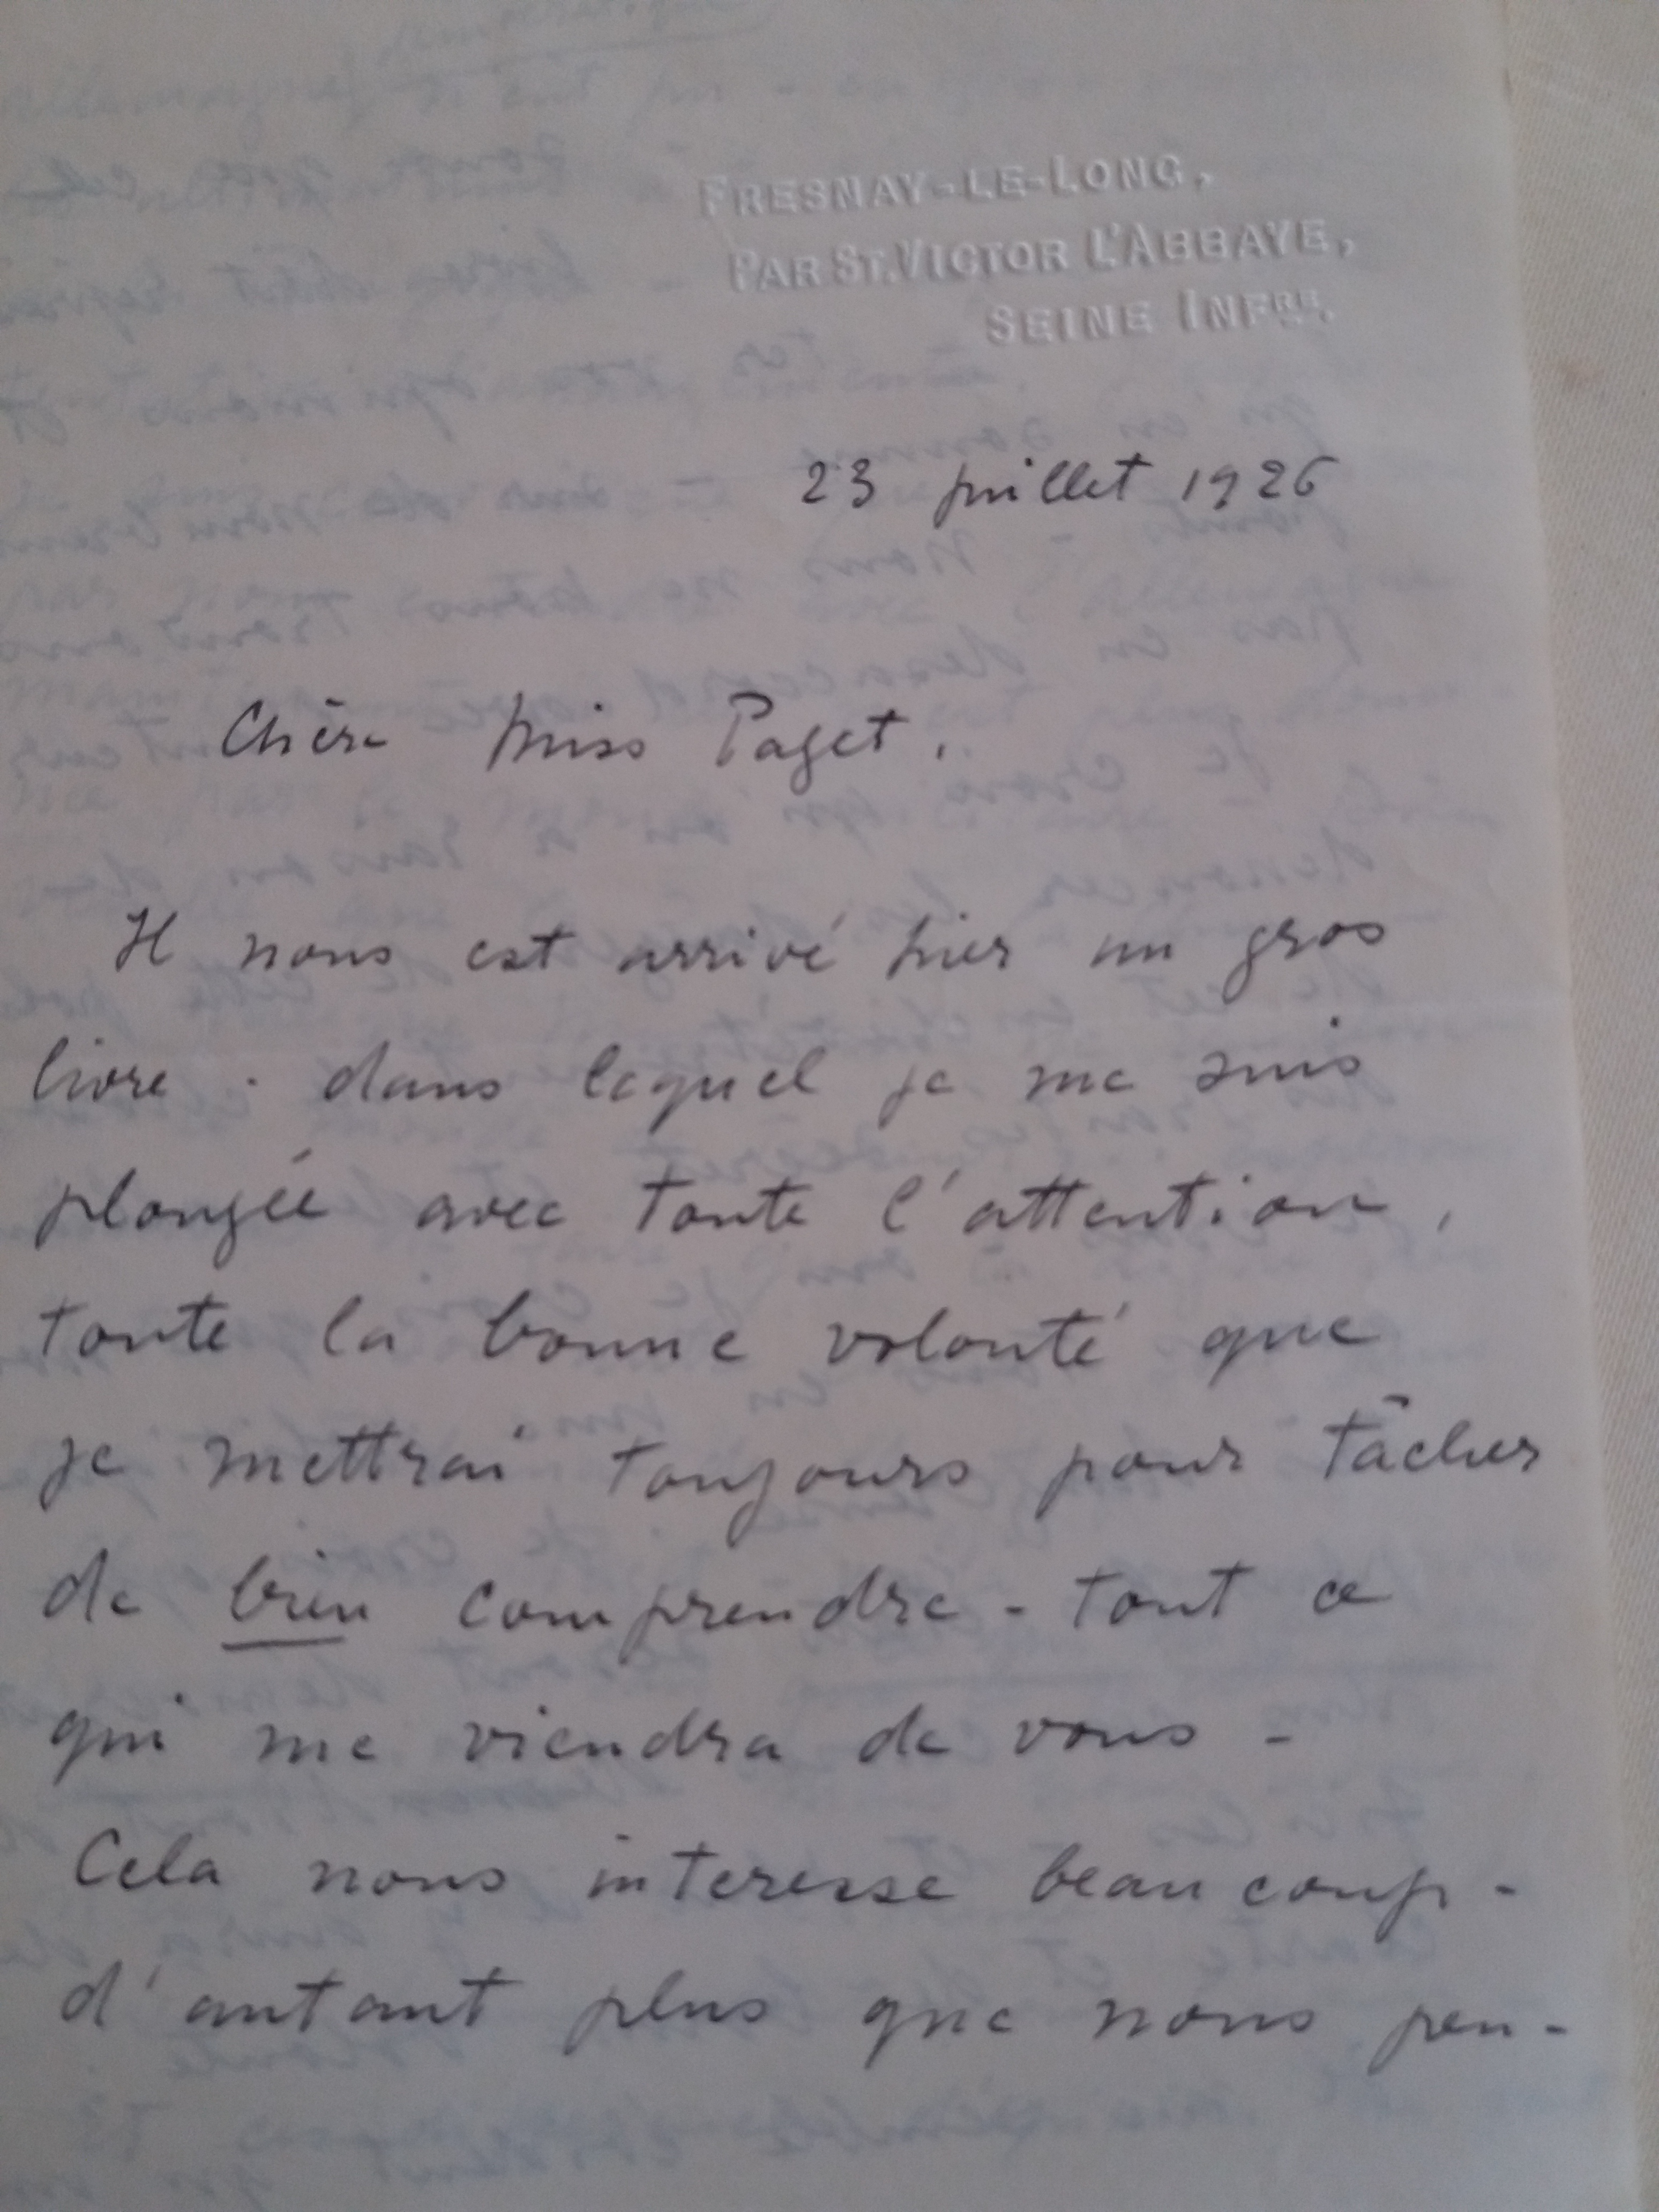 FRESNAY-LE-LONG,
PAR ST. VICTOR L'ABBAYE,
SEINE INFRE.
23 juillet 1926
Chère Miss Paget,
Il nous est arrivé hier un gros
livre - dans lequel je me suis
plongée avec toute l'attention,
toute la bonne volonté que
je mettrai toujours pour tâcher
de bien comprendre - tout ce
qui me viendra de vous -
Cela nous interesse beaucoup -
d'autant plus que nous pen-